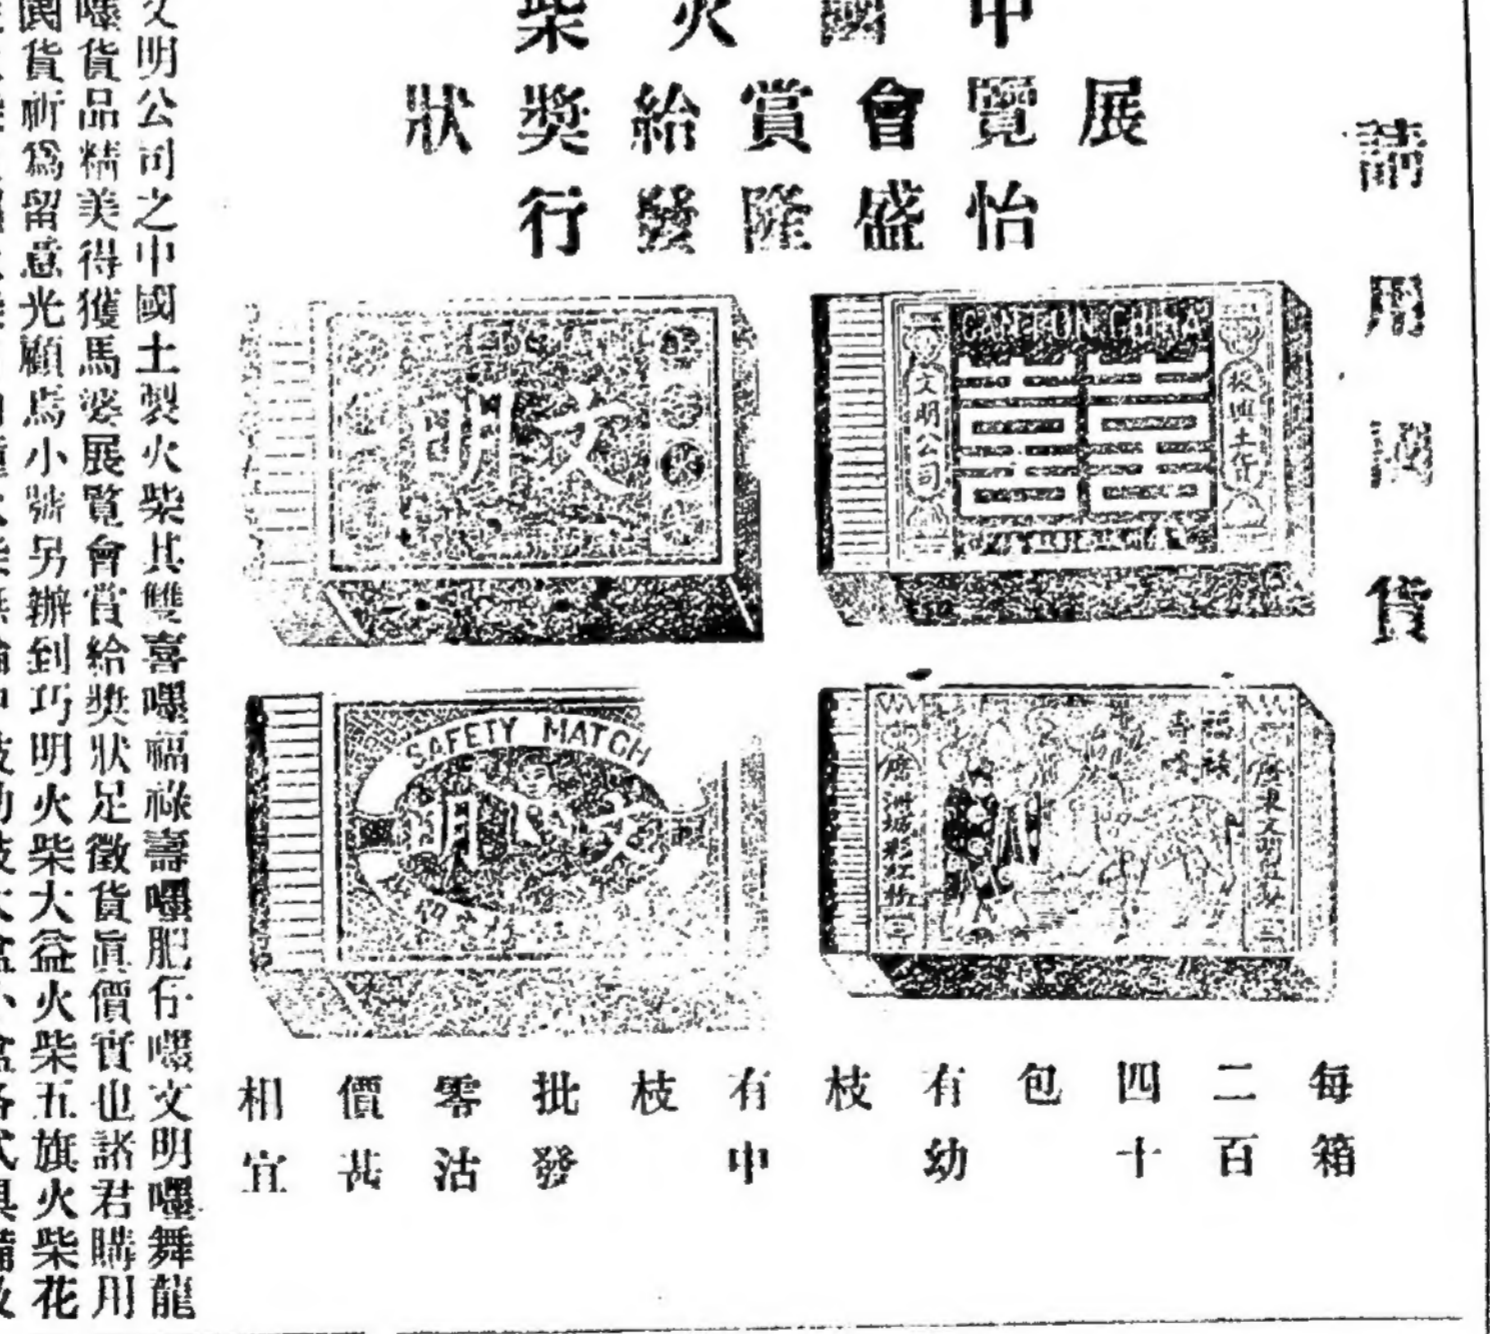 請用國貨
中國火柴
展覽會賞給獎狀
怡盛隆發行
CANTON CHINA
振興土貨
文明公司
文明
福祿
壽嘜
廣東文明公司
SAFETY MATCH
文明
每箱
二百
四十
包
有幼
枝
有中
枝
批發
零沽
價甚
相宜
文明公司之中國土製火柴其雙喜嘜福祿壽嘜肥仔嘜文明嘜舞龍
嘜貨品精美得獲馬婆展覽會賞給獎狀足徵貨眞價實也諸君購用
國貨祈爲留意光顧焉小號另辦到巧明火柴大益火柴五旗火柴花